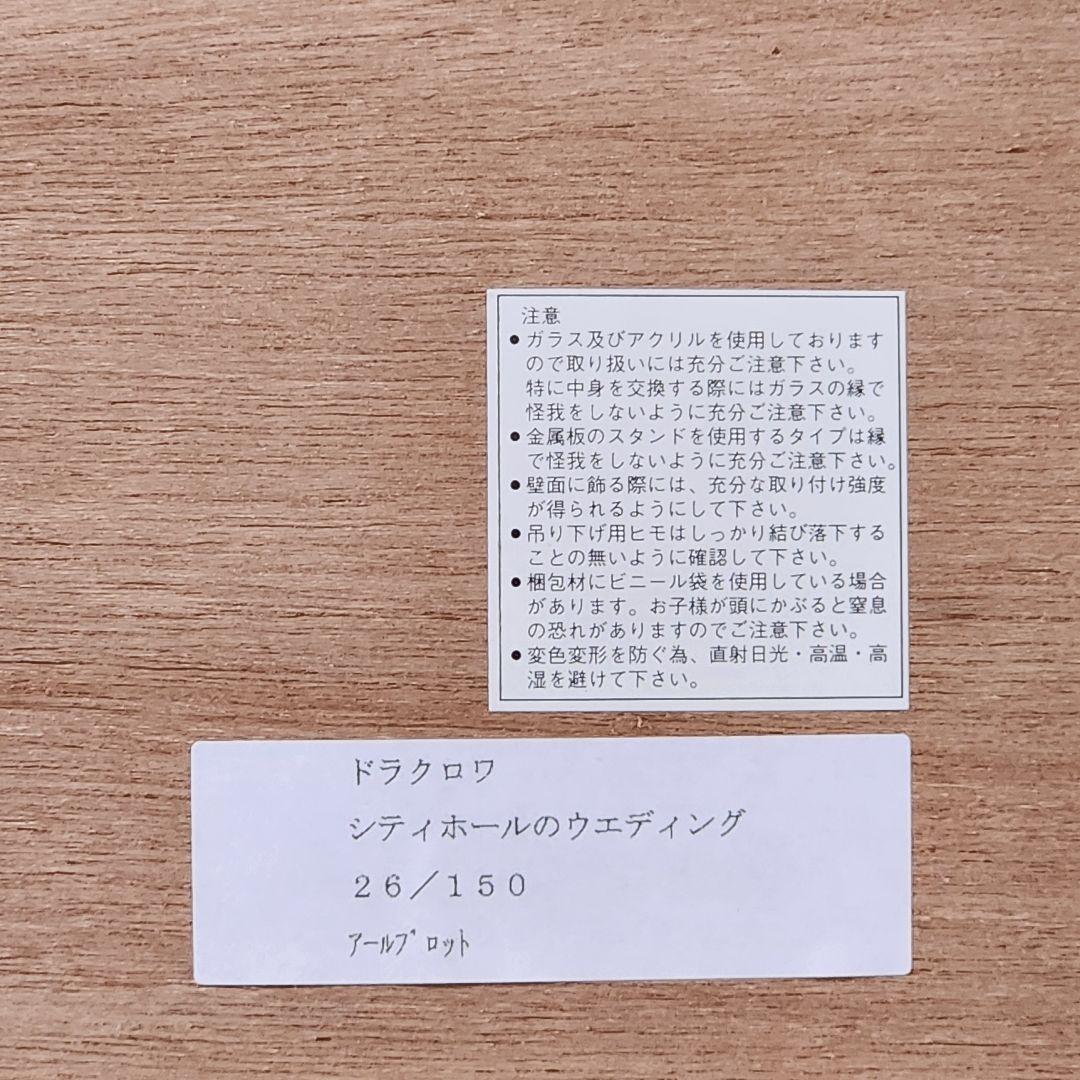 注意
●ガラス及びアクリルを使用しております
ので取り扱いには充分ご注意下さい。
特に中身を交換する際にはガラスの縁で
怪我をしないように充分ご注意下さい。
●金属板のスタンドを使用するタイプは縁
で怪我をしないように充分ご注意下さい。
●壁面に飾る際には、充分な取り付け強度
が得られるようにして下さい。
●吊り下げ用ヒモはしっかり結び落下する
ことの無いように確認して下さい。
●梱包材にビニール袋を使用している場合
があります。お子様が頭にかぶると窒息
の恐れがありますのでご注意下さい。
●変色変形を防ぐ為、直射日光・高温・高
湿を避けて下さい。
ドラクロワ
シティホールのウエディング
２６／１５０
ｱｰﾙﾌﾞﾛｯﾄ